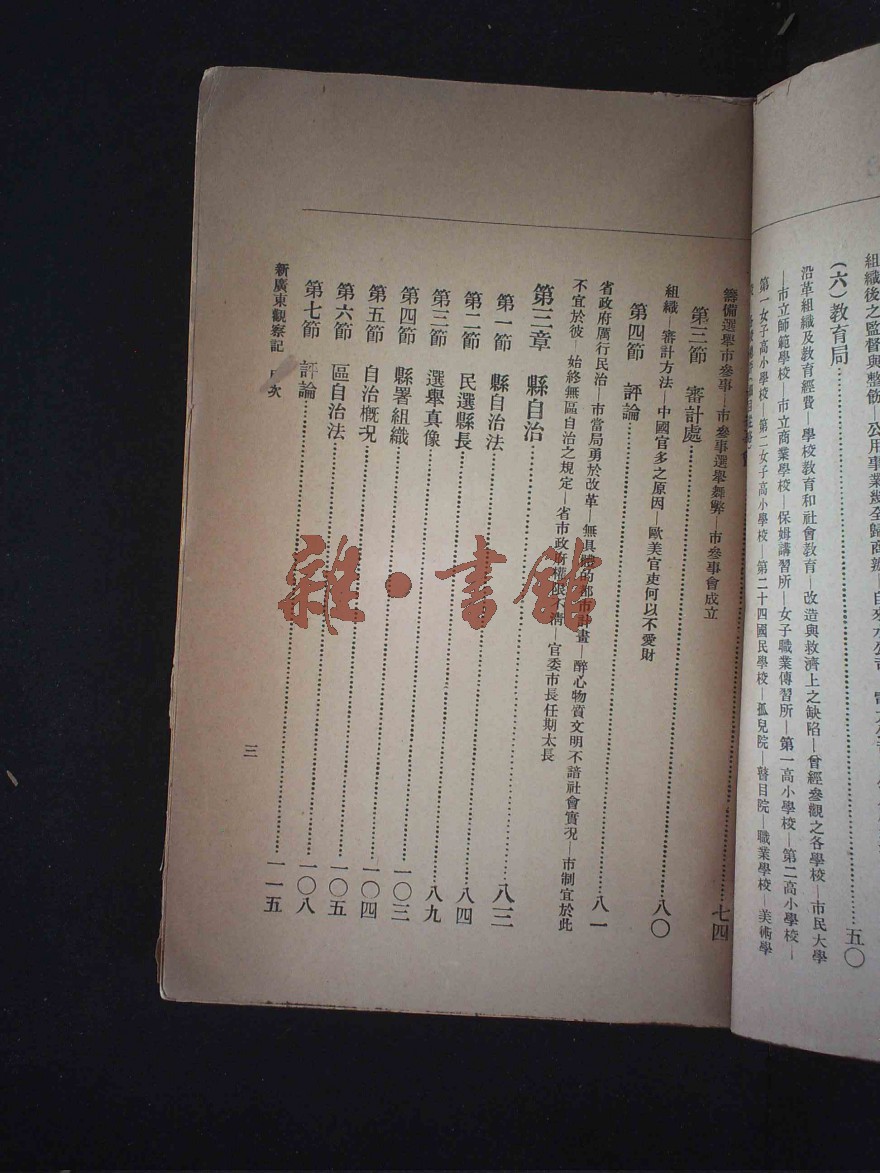 組織後之監督與整飭—公用事業幾全歸商辦—自來水公司
(六)教育局……五〇
沿革組織及教育經費—學校教育和社會教育—改造與救濟上之缺陷—曾經參觀之各學校—市民大學
—市立師範學校 市立商業學校—保姆講習所—女子職業傳習所—第一高小學校—第二高小學校—
第一女子高小學校—第二女子高小學校—第二十四國民學校—孤兒院—瞽目院—職業學校—美術學
會……七四
籌備選舉市參事—市參事選舉舞弊—市參事會成立
第三節 審計處……八〇
組織—審計方法—中國官多之原因—歐美官吏何以不愛財
第四節 評論……八一
省政府厲行民治—市當局勇於改革—無具體的都市計畫—醉心物質文明不諳社會實況—市制宜於此
不宜於彼—始終無區自治之規定—省市政府權限不清—官委市長任期太長
第三章 縣自治……八三
第一節 縣自治法……八四
第二節 民選縣長……八九
第三節 選舉真像……一〇三
第四節 縣署組織……一〇四
第五節 自治概況……一〇五
第六節 區自治法……一〇八
第七節 評論……一一五
新廣東觀察記 目次
三
雜·書館